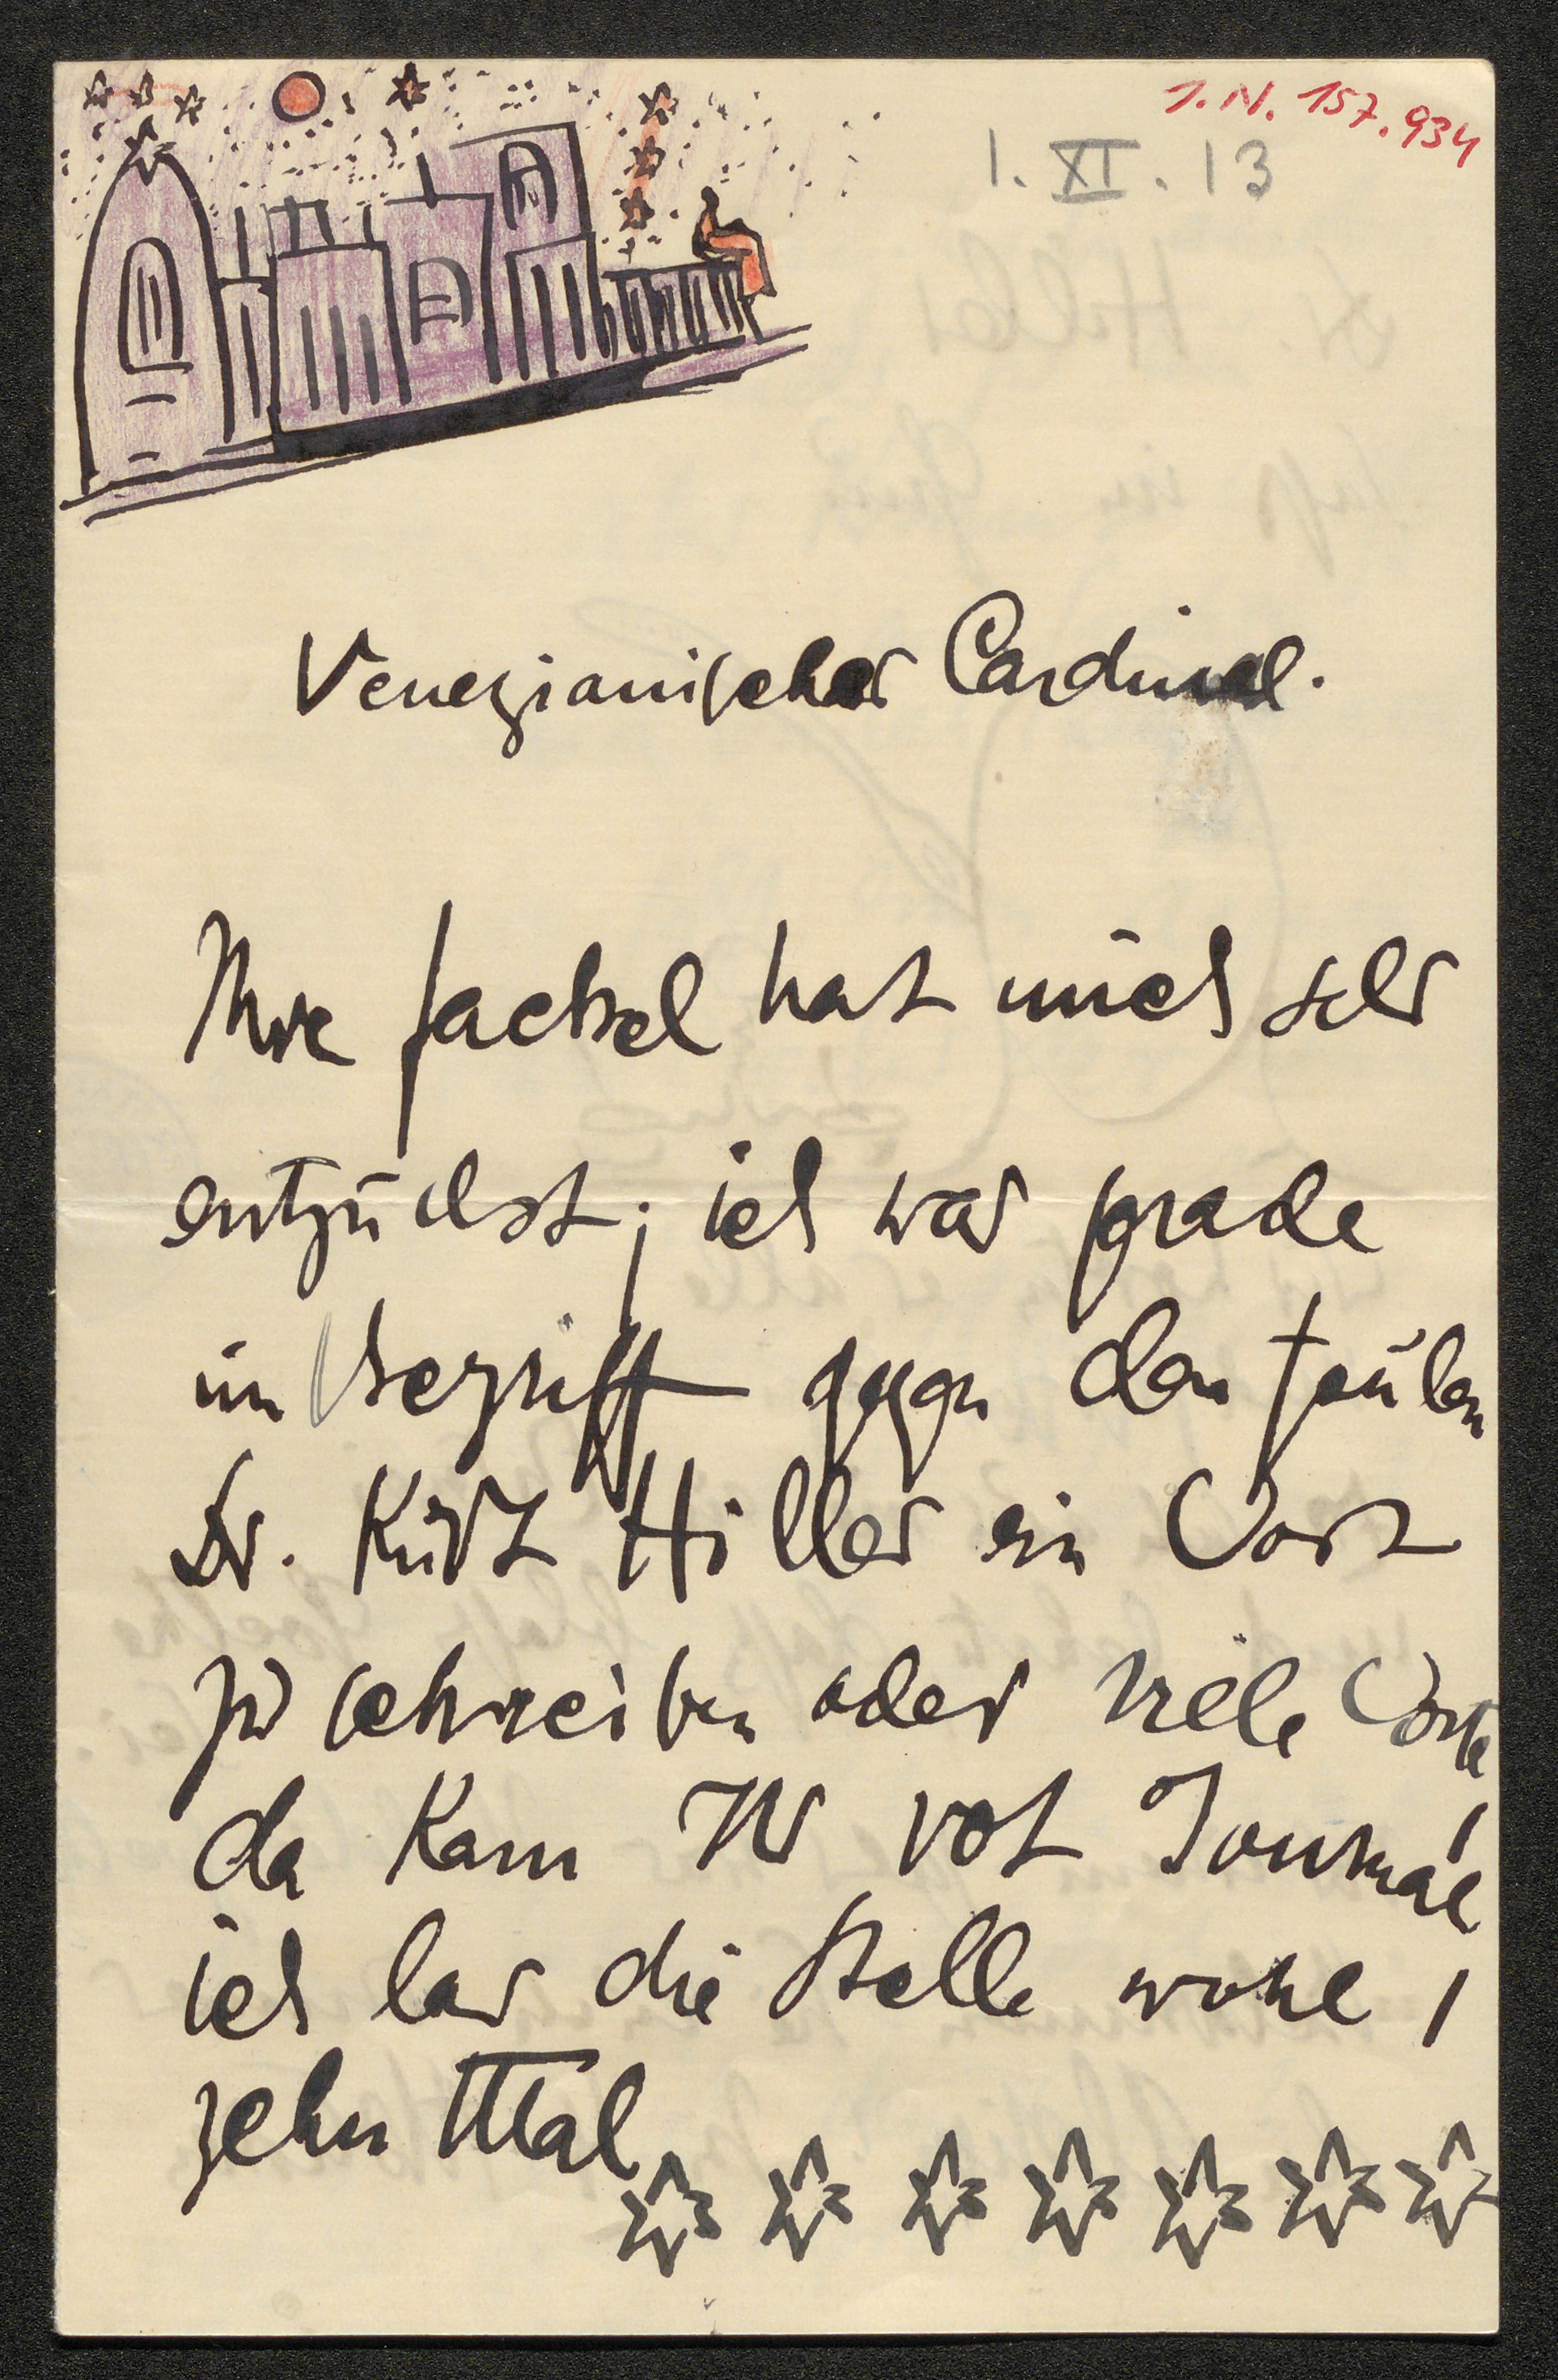 I.N. 157.934
1. XI. 13
Venezianischer Cardinal.
Ihre Fackel hat mich sehr
entzückt; ich war grade
im Begriff gegen den faulen
Dr. Kurt Hiller ein Wort
zu schreiben oder viele Worte,
da kam Ihr rot Journal,
ich las die Stelle wohl
zehn Mal